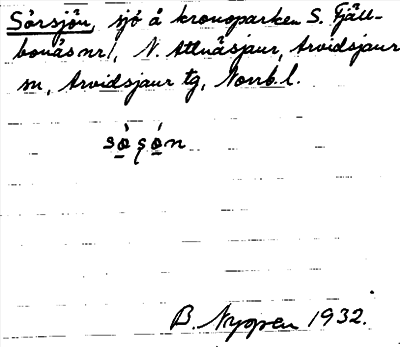 Sörsjön, sjö å kronoparken S. Fjäll-
bonäs nr 1, N. Attnäsjaur, Arvidsjaur
sn, Arvidsjaur tg, Norrb. l.
B. Nyopen 1932.